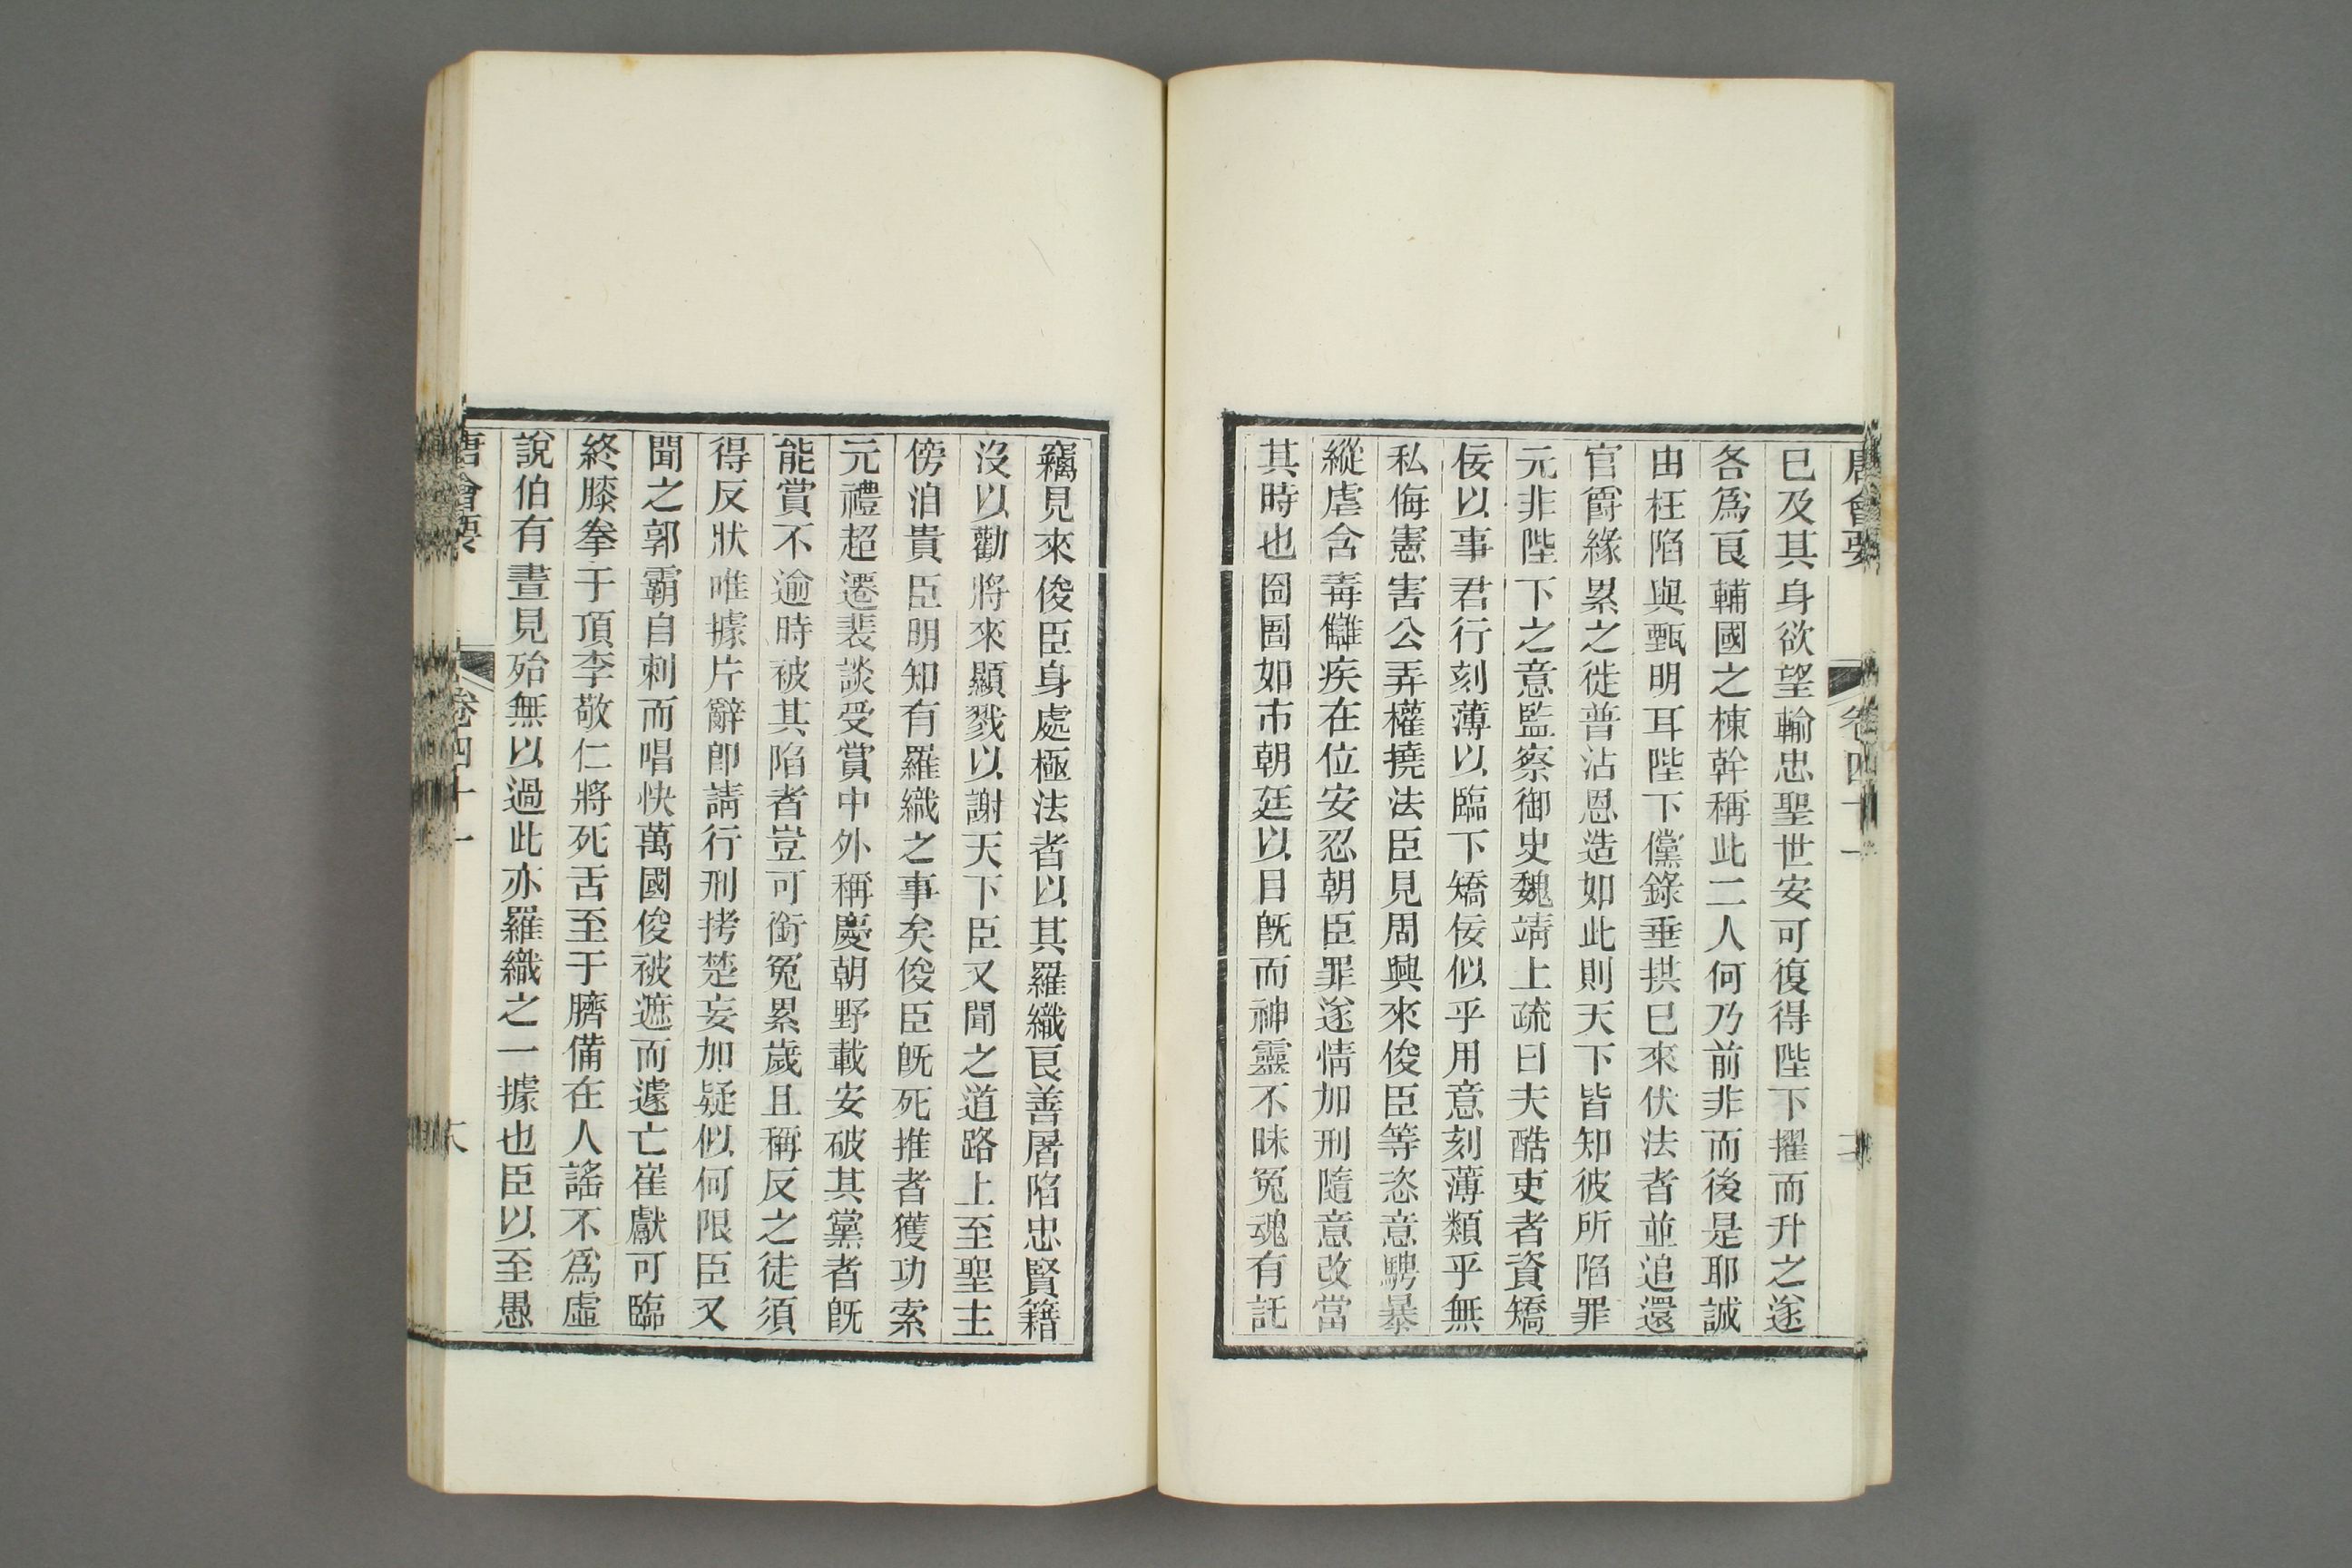 唐會要 卷四十一
已及其身欲望輸忠聖世安可復得陛下擢而升之遂
各爲良輔國之棟幹稱此二人何乃前非而後是耶誠
由枉陷與甄明耳陛下儻錄垂拱已來伏法者並追還
官爵緣累之徙普沾恩造如此則天下皆知彼所陷罪
元非陛下之意監察御史魏靖上疏曰夫酷吏者資矯
佞以事君行刻薄以臨下矯佞似乎用意刻薄類乎無
私侮憲害公弄權撓法臣見周興來俊臣等恣意騁暴
縱虐含毒讎疾在位安忍朝臣罪遂情加刑隨意改當
其時也囹圄如市朝廷以目既而神靈不昧冤魂有託
竊見來俊臣身處極法者以其羅織良善屠陷忠賢籍
沒以勸將來顯戮以謝天下臣又聞之道路上至聖主
傍洎貴臣明知有羅織之事矣俊臣既死推者獲功索
元禮超遷裴談受賞中外稱慶朝野載安破其黨者既
能賞不逾時被其陷者豈可銜冤累歲且稱反之徒須
得反狀唯據片辭即請行刑拷楚妄加疑似何限臣又
聞之郭霸自刺而唱快萬國俊被遮而遽亡崔獻可臨
終膝拳于頂李敬仁將死舌至于臍備在人謠不爲虛
說伯有晝見殆無以過此亦羅織之一據也臣以至愚
唐會要 卷四十一